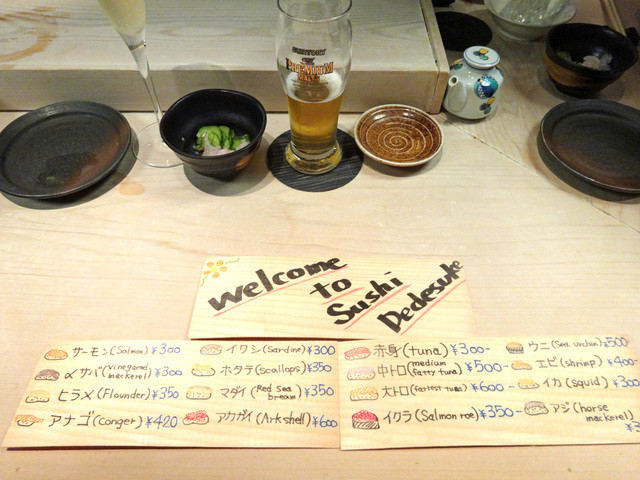 SUNTORY
THE
PREMIUM
MALT'S
Welcome
to
Sushi
Dedesuke
サーモン(Salmon) ¥300
〆サバ(Vinegared mackerel) ¥300
ヒラメ(Flounder) ¥350
アナゴ(Conger) ¥420
イワシ(Sardine) ¥300
ホタテ(Scallops) ¥350
マダイ(Red sea bream) ¥350
アカガイ(Ark shell) ¥600
赤身(tuna) ¥300-
中トロ(medium fatty tuna) ¥500-
大トロ(fattest tuna) ¥600-
イクラ(Salmon roe) ¥350-
ウニ(Sea urchin) ¥500-
エビ(shrimp) ¥400-
イカ(squid) ¥300
アジ(horse mackerel)